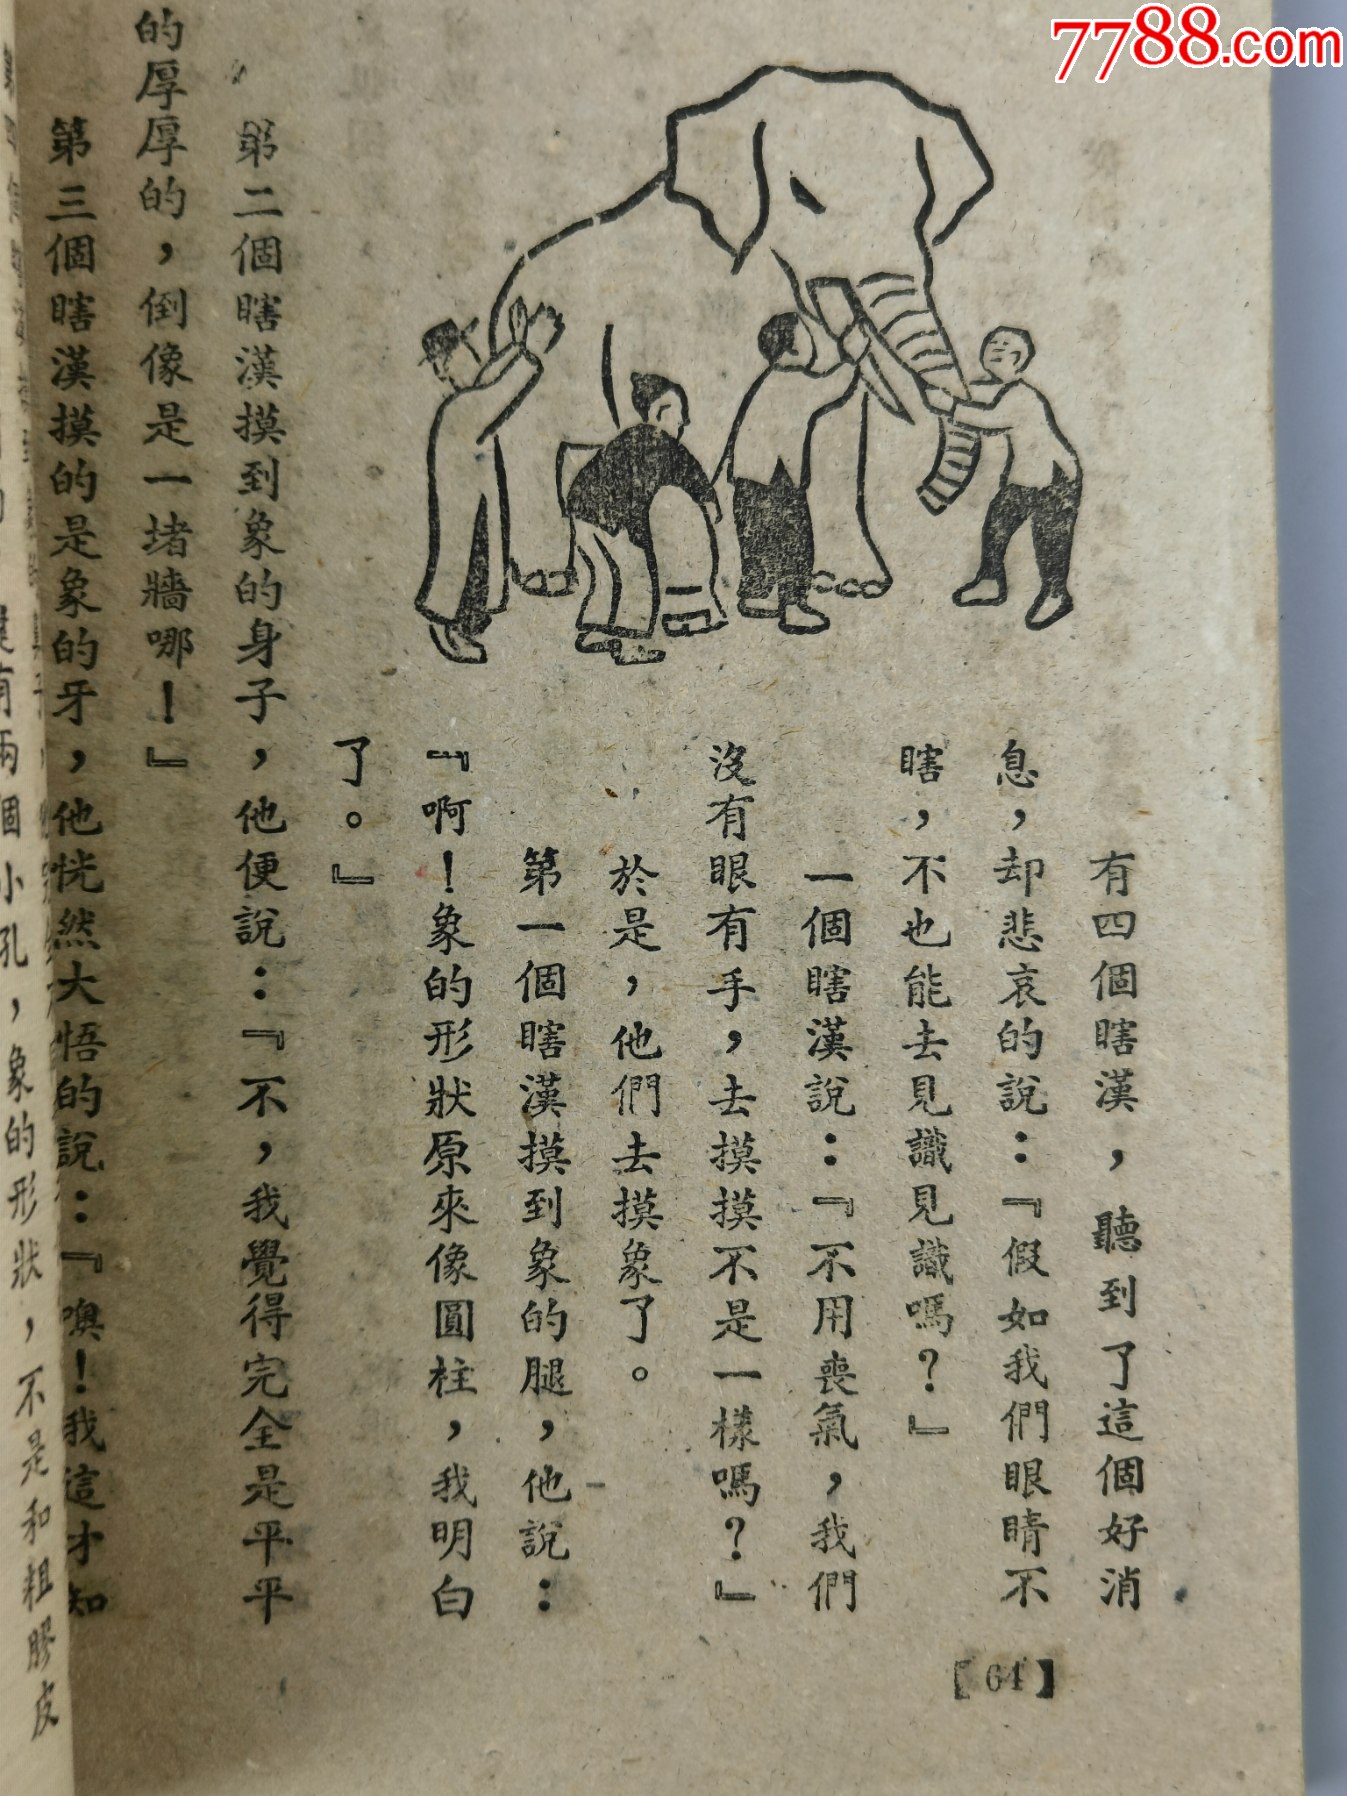 7788.com
有四個瞎漢，聽到了這個好消
息，却悲哀的說：『假如我們眼睛不
瞎，不也能去見識見識嗎？』
一個瞎漢說：『不用喪氣，我們
沒有眼有手，去摸摸不是一樣嗎？』
於是，他們去摸象了。
第一個瞎漢摸到象的腿，他說：
『啊！象的形狀原來像圓柱，我明白
了。』
第二個瞎漢摸到象的身子，他便說：『不，我覺得完全是平平
的厚厚的，倒像是一堵牆哪！』
第三個瞎漢摸的是象的牙，他恍然大悟的說：『噢！我這才知
【64】
有兩個小孔，象的形狀，不是和粗膠皮